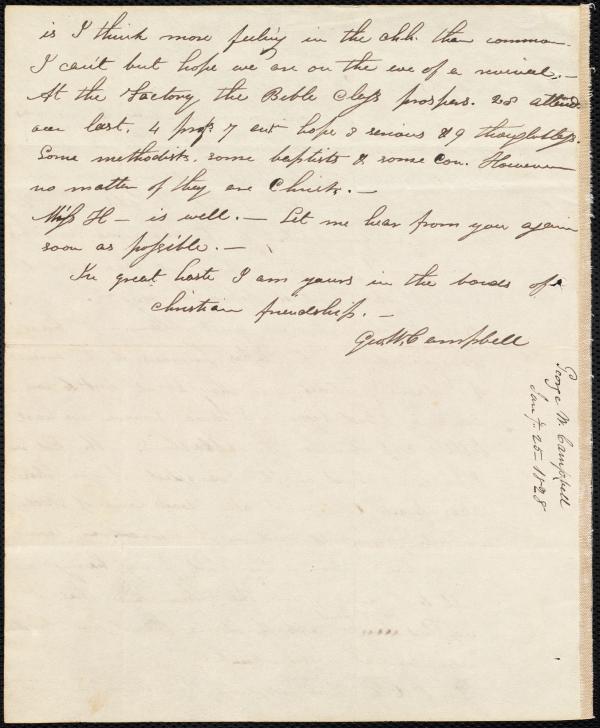 is I think more feeling in the chh. than common.
I can't but hope we are on the eve of a revival. —
At the Factory the Bible Class prospers. 28 attend
ace last. 4 prof. 7 ent hope 8 serious & 9 thoughtless.
Some methodists, some baptists & some Con. However
no matter if they are Christs. —
Miss H — is well. — Let me hear from you again
soon as possible. —
In great haste I am yours in the bonds of
christian friendship. —
Geo. W. Campbell
George W. Campbell
Jany. 25 — 1828